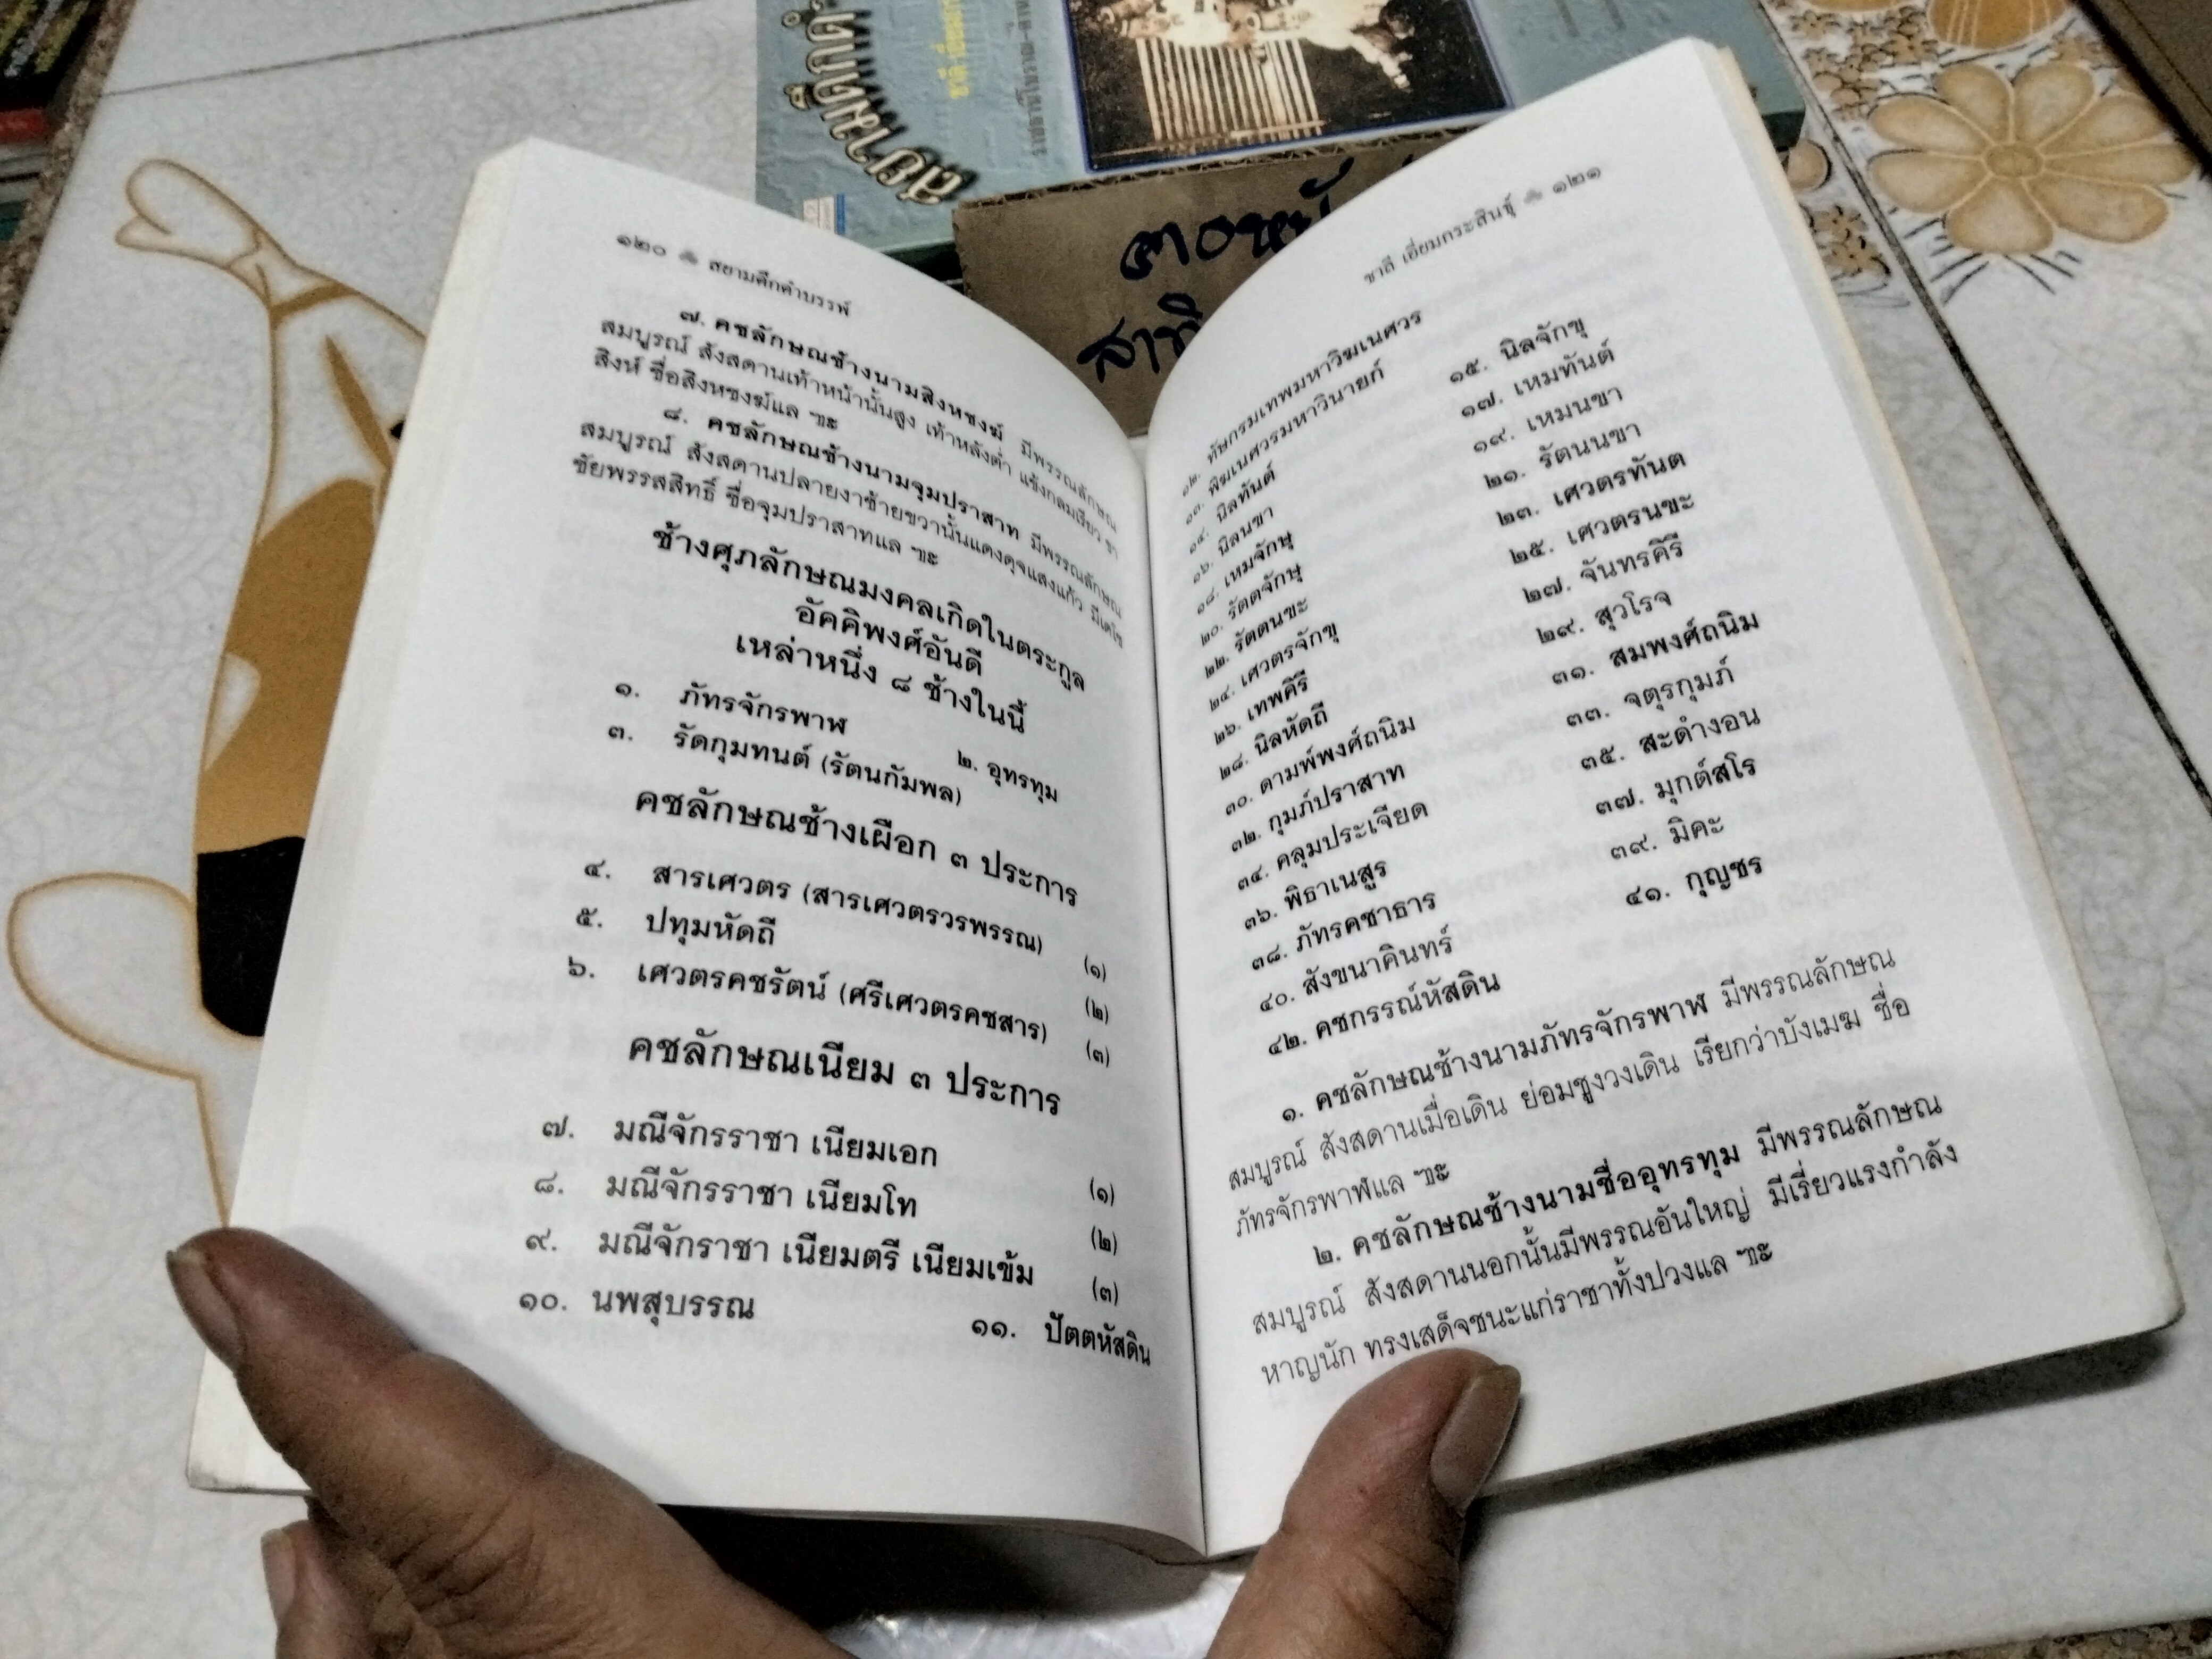 สยามดึกดำ
๓๐หน้
สาธิ
๑๒๐ สยามดึกดำบรรพ์
๗. คชลักษณช้างนามสิงหชงฆ์ มีพรรณลักษณ
สมบูรณ์ สังสดานเท้าหน้านั้นสูง เท้าหลังต่ำ แข้งกลมเรียว ขา
สิงห์ ชื่อสิงหชงฆ์แล ฯะ
๘. คชลักษณช้างนามจุมปราสาท มีพรรณลักษณ
สมบูรณ์ สังสดานปลายงาซ้ายขวานั้นแดงดุจแสงแก้ว มีเดโช
ชัยพรรสสิทธิ์ ชื่อจุมปราสาทแล ฯะ
ช้างศุภลักษณมงคลเกิดในตระกูล
อัคคิพงศ์อันดี
เหล่าหนึ่ง ๘ ช้างในนี้
๑. ภัทรจักรพาฬ ๒. อุทรทุม
๓. รัดกุมทนต์ (รัตนกัมพล)
คชลักษณช้างเผือก ๓ ประการ
๔. สารเศวตร (สารเศวตรวรพรรณ) (๑)
๕. ปทุมหัดถี (๒)
๖. เศวตรคชรัตน์ (ศรีเศวตรคชสาร) (๓)
คชลักษณเนียม ๓ ประการ
๗. มณีจักรราชา เนียมเอก (๑)
๘. มณีจักรราชา เนียมโท (๒)
๙. มณีจักราชา เนียมตรี เนียมเข้ม (๓)
๑๐. นพสุบรรณ ๑๑. ปัตตหัสดิน
ชาลี เอี่ยมกระสินธุ์ ๑๒๑
๑๒. ทัษกรมเทพมหาวิฆเนศวร
๑๓. พิฆเนศวรมหาวินายก์
๑๔. นิลทันต์ ๑๕. นิลจักขุ
๑๖. นิลนขา ๑๗. เหมทันต์
๑๘. เหมจักษุ ๑๙. เหมนขา
๒๐. รัตตจักษุ ๒๑. รัตนนขา
๒๒. รัตตนขะ ๒๓. เศวตรทันต
๒๔. เศวตรจักขุ ๒๕. เศวตรนขะ
๒๖. เทพคิรี ๒๗. จันทรคิรี
๒๘. นิลหัดถี ๒๙. สุวโรจ
๓๐. ดามพ์พงศ์ถนิม ๓๑. สมพงศ์ถนิม
๓๒. กุมภ์ปราสาท ๓๓. จตุรกุมภ์
๓๔. คลุมประเจียด ๓๕. สะดำงอน
๓๖. พิธาเนสูร ๓๗. มุกต์สโร
๓๘. ภัทรคชาธาร ๓๙. มิคะ
๔๐. สังขนาคินทร์ ๔๑. กุญชร
๔๒. คชกรรณ์หัสดิน
๑. คชลักษณช้างนามภัทรจักรพาฬ มีพรรณลักษณ
สมบูรณ์ สังสดานเมื่อเดิน ย่อมชูงวงเดิน เรียกว่าบังเมฆ ชื่อ
ภัทรจักรพาฬแล ฯะ
๒. คชลักษณช้างนามชื่ออุทรทุม มีพรรณลักษณ
สมบูรณ์ สังสดานนอกนั้นมีพรรณอันใหญ่ มีเรี่ยวแรงกำลัง
หาญนัก ทรงเสด็จชนะแก่ราชาทั้งปวงแล ฯะ